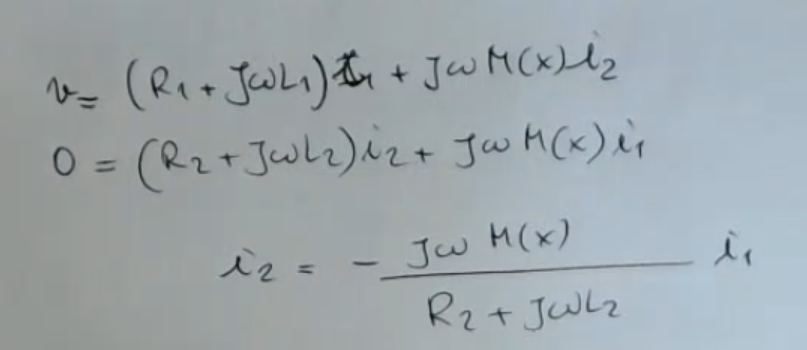 v = (R1 + JωL1) i1 + JωM(x) i2
0 = (R2 + JωL2) i2 + JωM(x) i1
i2 = - JωM(x) / (R2 + JωL2) i1